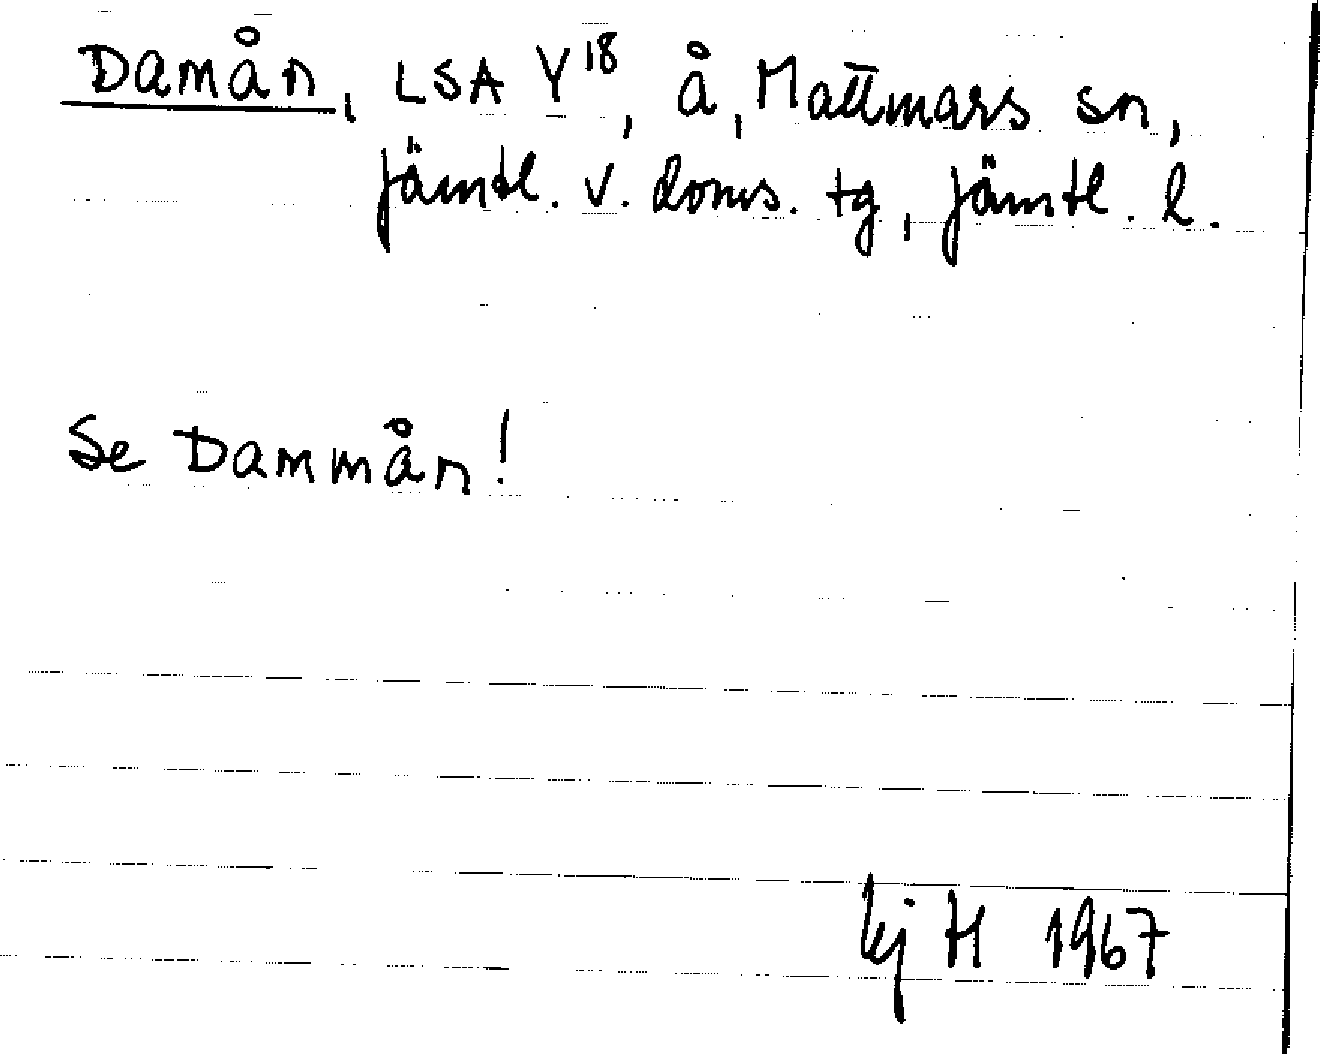 Damån, LSA Y18, å, Mattmars sn,
Jämtl. v. doms. tg, Jämtl. l.
Se Dammån!
kj H 1967